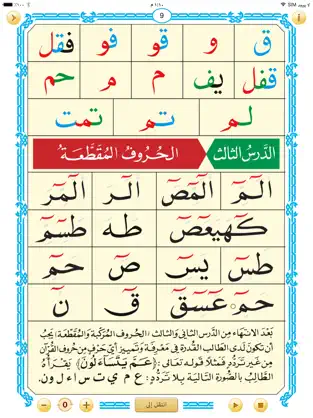 9
ق و قو فو فقل
قفل يف م م حم
لم تم تمت
الدَّرسُ الثالث الحُرُوفُ المُقَطَّعَة
الٓمٓ الٓمٓصٓ الٓر الٓمٓر
كٓهيعٓصٓ طه طسٓمٓ
طسٓ يسٓ صٓ حمٓ
حمٓ عٓسٓقٓ قٓ نٓ
بَعْدَ الانتهَاءِ مِنَ الدَّرسَينِ الثانِي وَالثالث (الحُروفُ المُرَكَّبَة وَالمُقَطَّعَة) يَجِبُ
أن تكُونَ لَدَى الطالبِ القُدرَة فِي مَعْرِفَةِ وَتَمْيِيزِ أيِّ حَرْفٍ مِن حُروفِ القُرْآنِ
مِن غَيرِ تَردُّدٍ فَمثلاً قوله تعالى: (عَمَّ يَتَسَآءَلُونَ) يَقْرَأُهَا
الطَّالِبُ بِالصُّورَةِ التَّاليَةِ بِلا تَرَدُّدٍ: ع م ي ت س ا ء ل و ن.
0 انتقل إلى